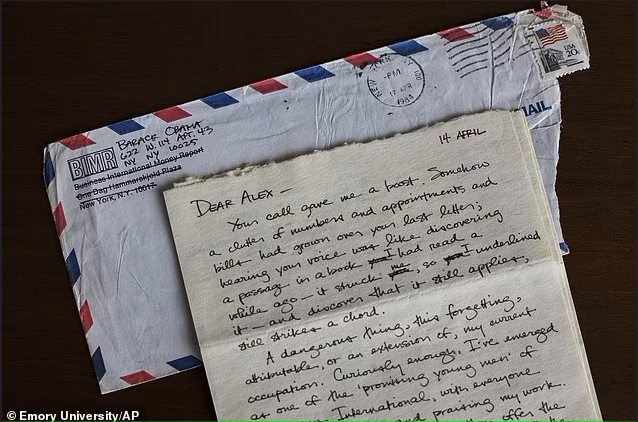 BARACK OBAMA
622 W. 114 APT. 43
NY NY 10025
BIMR
Business International Money Report
One Dag Hammarskjold Plaza
New York, N.Y. 10017
NEW YORK, NY
PM
17 APR
1984
USA
20c
MAIL
14 APRIL
DEAR ALEX —
Your call gave me a boost. Somehow
a clutter of numbers and appointments and
bills had grown over your last letter;
hearing your voice was like discovering
a passage in a book I had read a
while ago — it struck me, so I underlined
it — and discover that it still applies,
still strikes a chord.
A dangerous thing, this forgetting,
attributable, or an extension of, my current
occupation. Curiously enough, I've emerged
as one of the "promising young men" of
International, with everyone
and praising my work.
offers the
© Emory University/AP